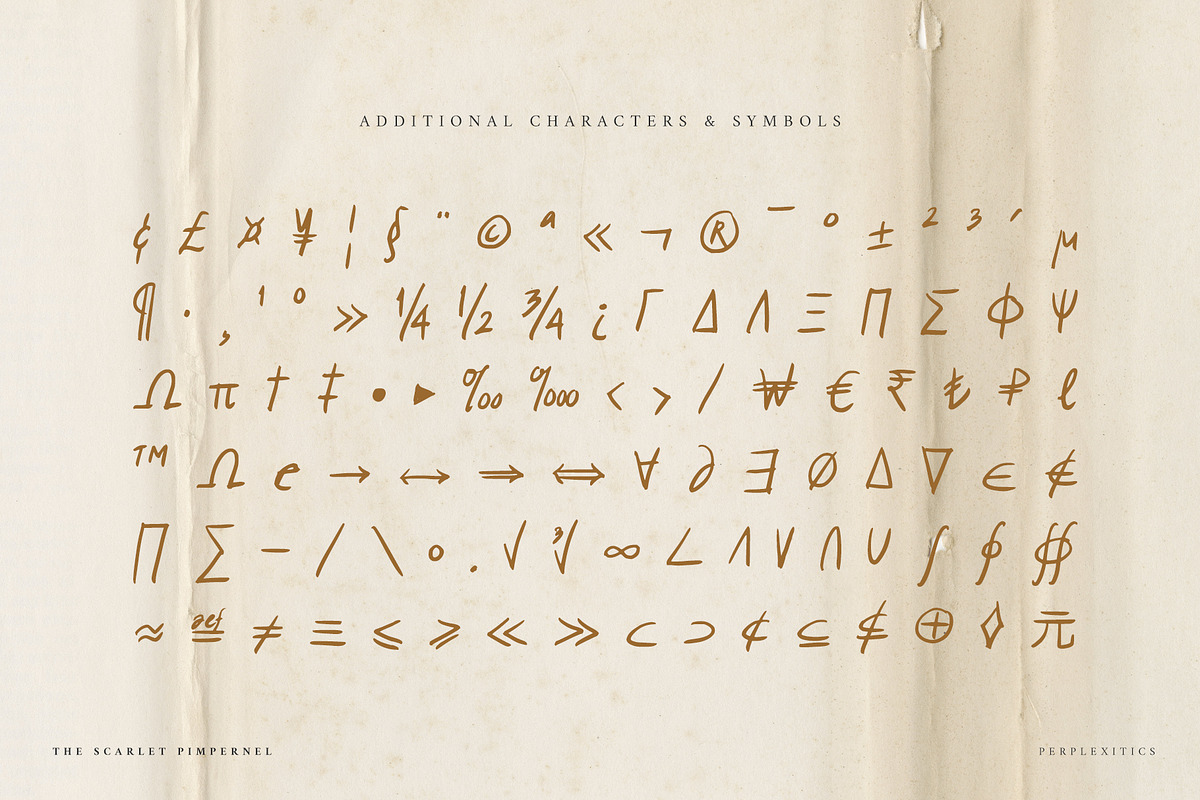 ADDITIONAL CHARACTERS & SYMBOLS
¢ £ ¤ ¥ ¦ § ¨ © ª « ¬ ® ¯ ° ± ² ³ ´ µ
¶ · ¸ ¹ º » ¼ ½ ¾ ¿ Γ Δ Λ Ξ Π Σ Φ Ψ
Ω π † ‡ • ‣ ‰ ‱ ‹ › ⁄ ₩ € ₹ ₺ ₽ ℓ
™ Ω ℮ → ↔ ⇒ ⇔ ∀ ∂ ∃ ∅ ∆ ∇ ∈ ∉
∏ ∑ − ∕ ∖ ∘ . √ ∛ ∞ ∠ ∧ ∨ ∩ ∪ ∫ ∮ ∯
≈ ≝ ≠ ≡ ⩽ ⩾ ≪ ≫ ⊂ ⊃ ⊄ ⊆ ⊈ ⊕ ◊ 元
THE SCARLET PIMPERNEL
PERPLEXITICS